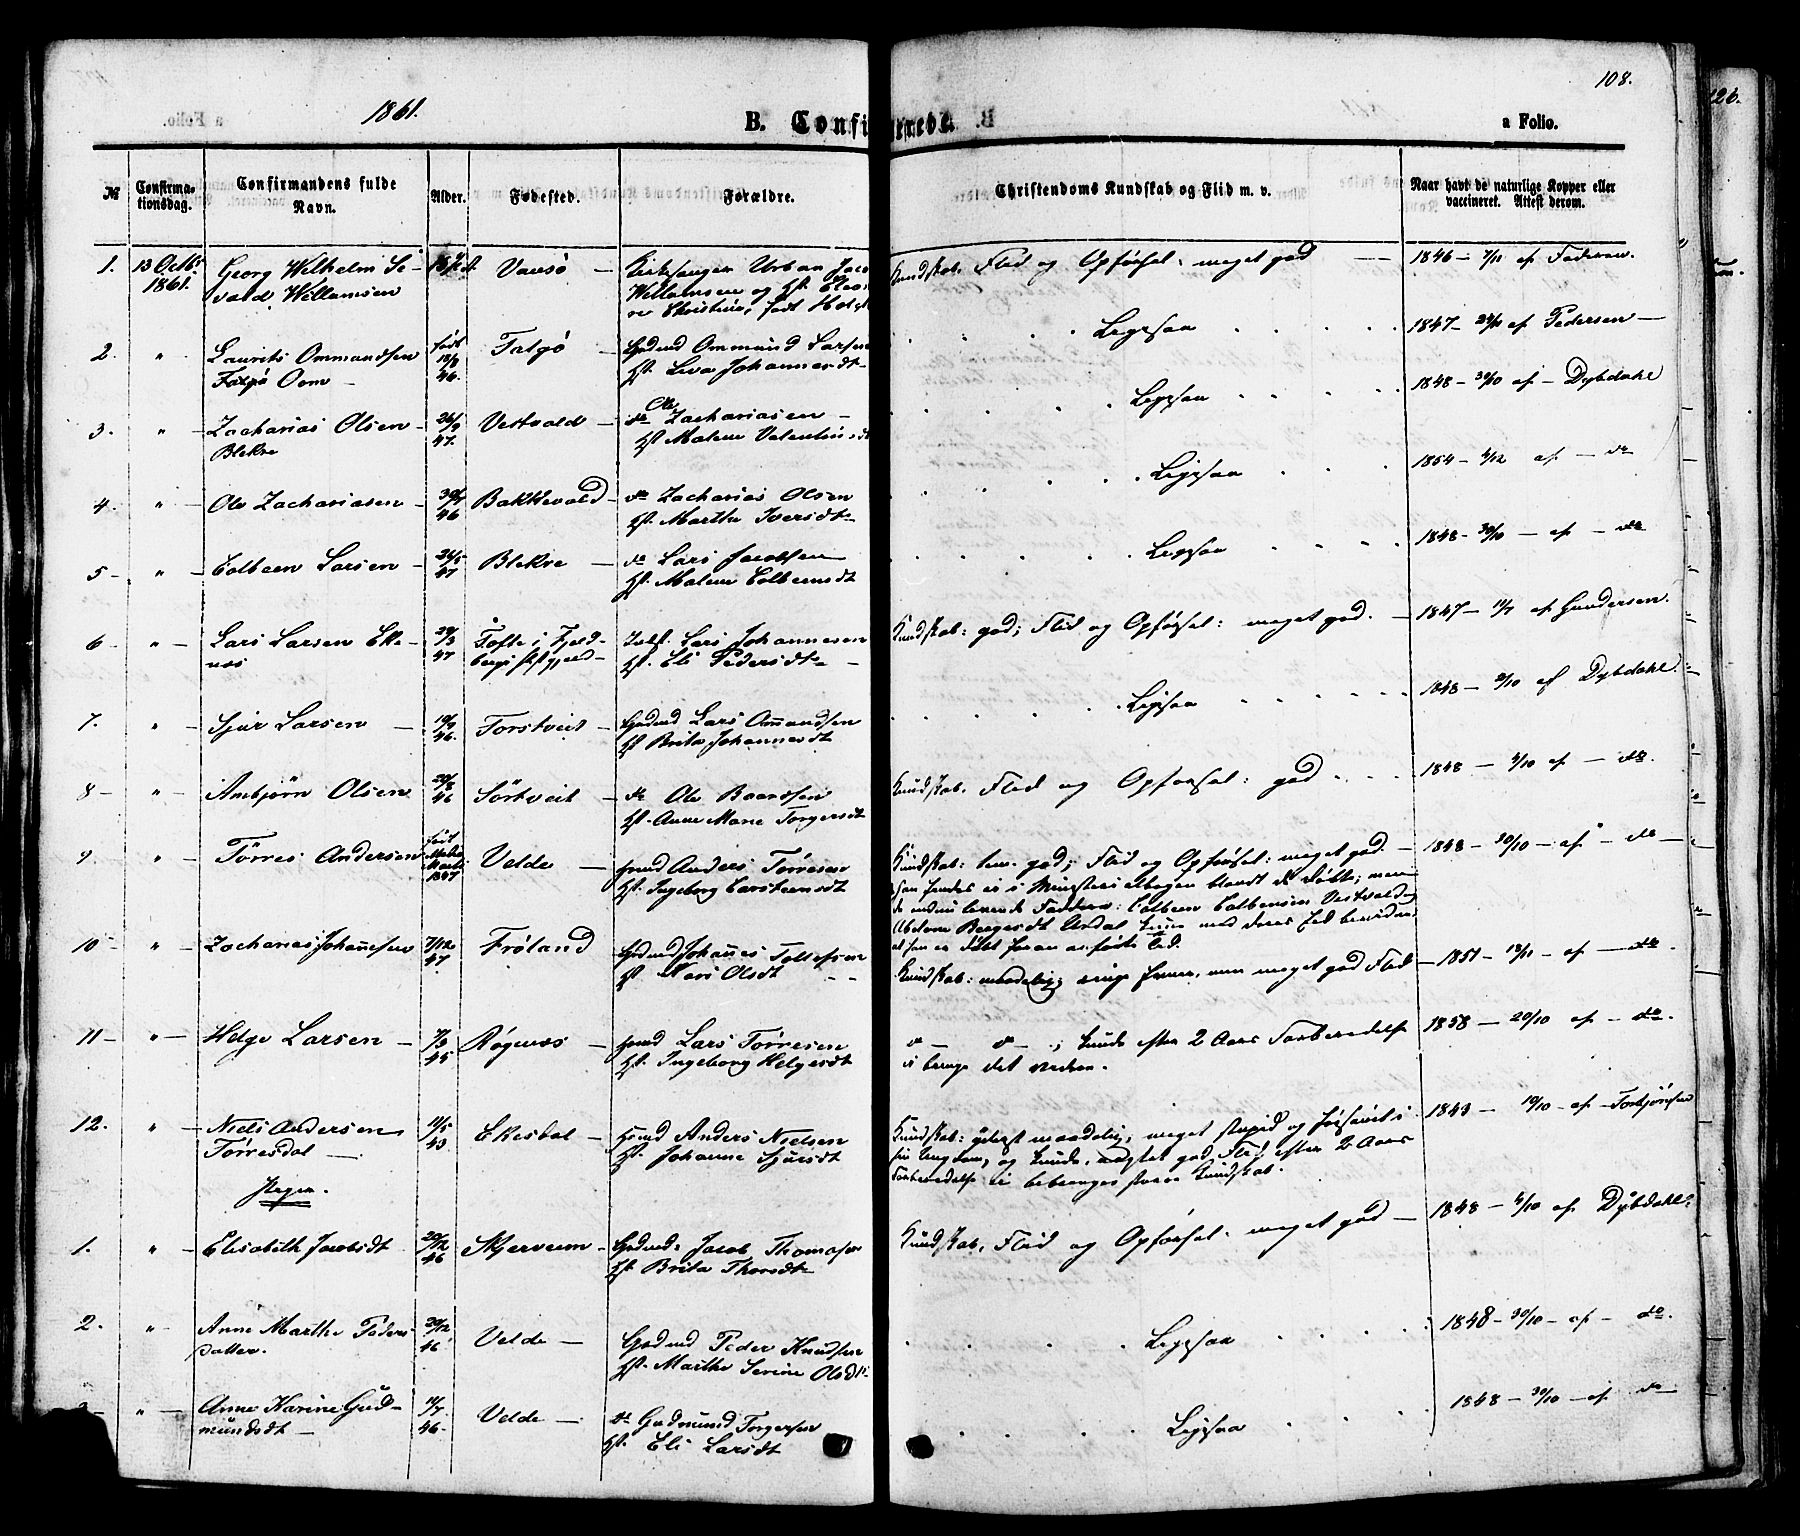 1861.
B. Confirmerede.
108.
a Folio.
126.
№
Confirma-
tionsdag.
Confirmandens fulde
Navn.
Alder.
Fødested.
Forældre.
Christendoms Kundskab og Flid m. v.
Naar havt de naturlige Kopper eller
vaccineret. Attest derom.
1. 13 Octbr 1861. Georg Wilhelm Si-
vald Willumsen
Vansø
Kirkesanger Urban Jacob
Willumsen og H.
Christine, født
Kundskab, Flid og Opførsel: meget god
1846 - 7/11 af Faderen.
2. " Laurits Ommundsen
født 18/8 46.
Fatgø
Gdmd Ommund Larsen
H. Johannesdt
Ligesaa
1847 - af Pedersen
3. " Zacharias Olsen
Blekre
24/9 47.
Vestvold
do Ole Zachariasen
H. Malene Valentinsdt
Ligesaa
1848 - 30/10 af - Dybdahl
4. " Ole Zachariasen
46
Bakkevold
do Zacharias Olsen
H. Marthe Iversdt
Ligesaa
1854 - 4/12 af - do
5 " Colbeen Larsen
24/5 47
Blekre
do Lars Jacobsen
H. Malene Colbeensdt
Ligesaa
1848 - 30/10 - af - do
6 " Lars Larsen Eke-
næs
29/3 47
Tofte i Fjeld-
bergs Præstegjeld
Lars Johannesen
H. Eli Pedersdt
Kundskab: god; Flid og Opførsel: meget god.
1847 - 11/7 af Gundersen.
7. " Sjur Larsen
46.
Torstveit
Gdmd Lars Ommundsen
H. Brita Johannesdt
Ligesaa
1848 - 9/10 af Dybdahl.
8 " Anbjørn Olsen
29/8 46
Sørtveit
do Ole Baardsen
H. Anne Marie Torgersdt
Kundskab, Flid og Opførsel: god
1848 - 9/10 af - do.
9 " Tørres Andersen
født
1847
Velde
Anders Tørresen
H. Ingeborg Carsteensdt
Kundskab: tem. god; Flid og Opførsel: meget god.
han findes ei i Ministerialbogen blandt de døbte; men
de endnu levende Faddere: Colbeen Colbensen Vestvold og
1848 - 30/10 - af - do
10 " Zacharias Johannesen
7/12 47
Frøland
Gdmd Johannes Tollefsen
H. Kari Olsdt
Kundskab: maadelig; ringe Evner, men meget god Flid
1851 - 18/11 - af - do.
11 " Helge Larsen
7/3 45
Røgenæs
Lars Tørresen
H. Ingeborg Helgesdt
do - do - ; kunde efter 2 Aars Forberedelse
ei bringe det videre.
1858 - 20/10 af - do.
12. " Niels Andersen
Tørresdal
11/5 43
Ekesdal
Anders Nielsen
H. Johanne Sjursdt
Kundskab: yderst maadelig; meget stupid og forsømt i
sin Ungdom, og kunde, uagtet god Flid, efter 2 Aars
Forberedelse ei bibringes større Kundskab.
1843 - 19/10 - af - Torbjørnsen
Piger.
1. " Elisabeth Jacobsdt
29/12 46
Skjerveim
Gdmd: Jacob Thomasen
H. Brita Thorsdt
Kundskab, Flid og Opførsel: meget god
1848 - 4/10 af Dybdahl.
2. " Anne Marthe Peders-
datter.
29/12 46
Velde
Gdmd Peder Knudsen
H. Marthe Serine Olsdt
Ligesaa
1848 - 30/10 - af - do.
" Anne Karine Gud-
mundsdt
11/7 46.
Velde
do Gudmund Torgersen
H. Eli Larsdt
Ligesaa
1848 - 30/10 - af do